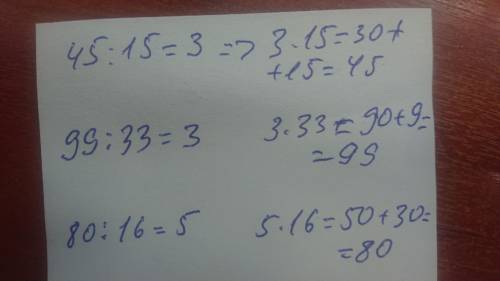 45:15=3 => 3·15=30+
+15=45
99:33=3 3·33=90+9=
=99
80:16=5 5·16=50+30=
=80